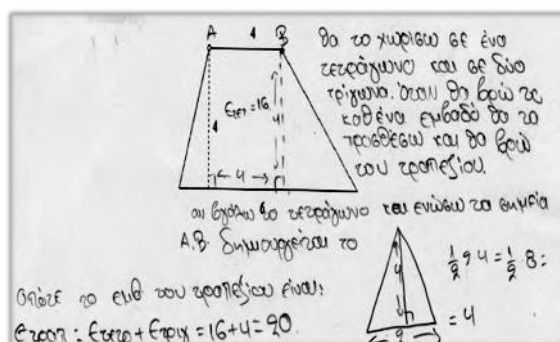 A 4 B
4
Ετετ=16
4
← 4 →
θα το χωρίσω σε ένα
τετράγωνο και σε δύο
τρίγωνα. Όταν θα βρω το
καθένα εμβαδό θα τα
προσθέσω και θα βρω
του τραπεζίου.
αν βγάλω το τετράγωνο και ενώσω τα σημεία
A,B. δημιουργείται το
4
2
1/2 2 4 = 1/2 8 =
= 4
οπότε το εμβ του τραπεζίου είναι:
Ετραπ = Ετετρ + Ετριγ = 16+4=20.